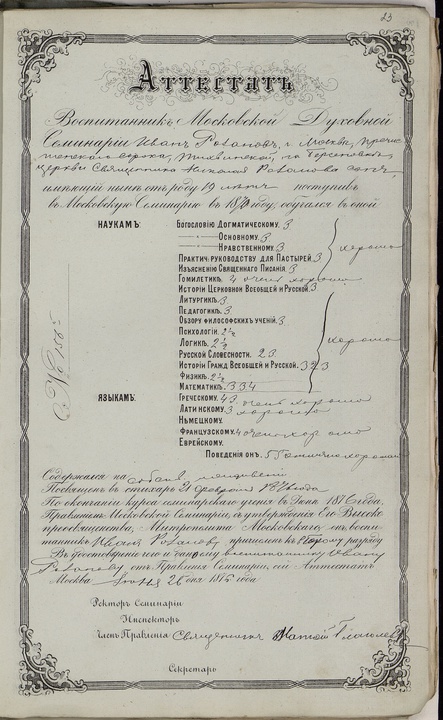 23
Аттестатъ
Воспитанникъ Московской Духовной
Семинаріи Иванъ Романовъ, г. Москвы, Пречис
тенскаго сорока, Тихвинской,
церкви Священника Николая Романова сынъ,
имѣющій нынѣ отъ роду 19 лѣтъ поступивъ
въ Московскую Семинарію въ 1870 году, обучался въ оной
НАУКАМЪ: Богословію Догматическому. 3
— Основному. 3
— Нравственному. 3
Практич. руководству для Пастырей 3
Изъясненію Священнаго Писанія 3
хорошо
Гомилетикѣ. 4 очень хорошо
Исторіи Церковной Всеобщей и Русской. 3
Литургикѣ. 3
Педагогикѣ. 3
Обзору философскихъ ученій. 3
Психологіи 2½
Логикѣ. 2½
Русской Словесности. 2 3
Исторіи Гражд Всеобщей и Русской. 3 2 3
Физикѣ. 2½
Математикѣ. 3 3 4
хорошо
ЯЗЫКАМЪ: Греческому. 4 3 очень хорошо
Латинскому 3 хорошо
Нѣмецкому.
Французскому. 4 очень хорошо
Еврейскому.
Поведенія онъ. 5 5 отлично хорошаго
№ 186
Содержался на
Посвященъ въ стихарь 21 февраля 1876 года
По окончаніи курса семинарскаго ученія въ Іюнѣ 1876 года,
Правленіемъ Московской Семинаріи, съ утвержденія Его Высоко
преосвященства, Митрополита Московскаго, онъ воспи
танникъ Иванъ Романовъ причисленъ къ второму разряду
Въ удостовѣреніе чего и данъ ему воспитаннику Ивану
Романову отъ Правленія Семинаріи, сей Аттестатъ
Москва 26 дня 1876 года
Ректоръ Семинаріи
Инспекторъ
Членъ Правленія Священникъ
Секретарь